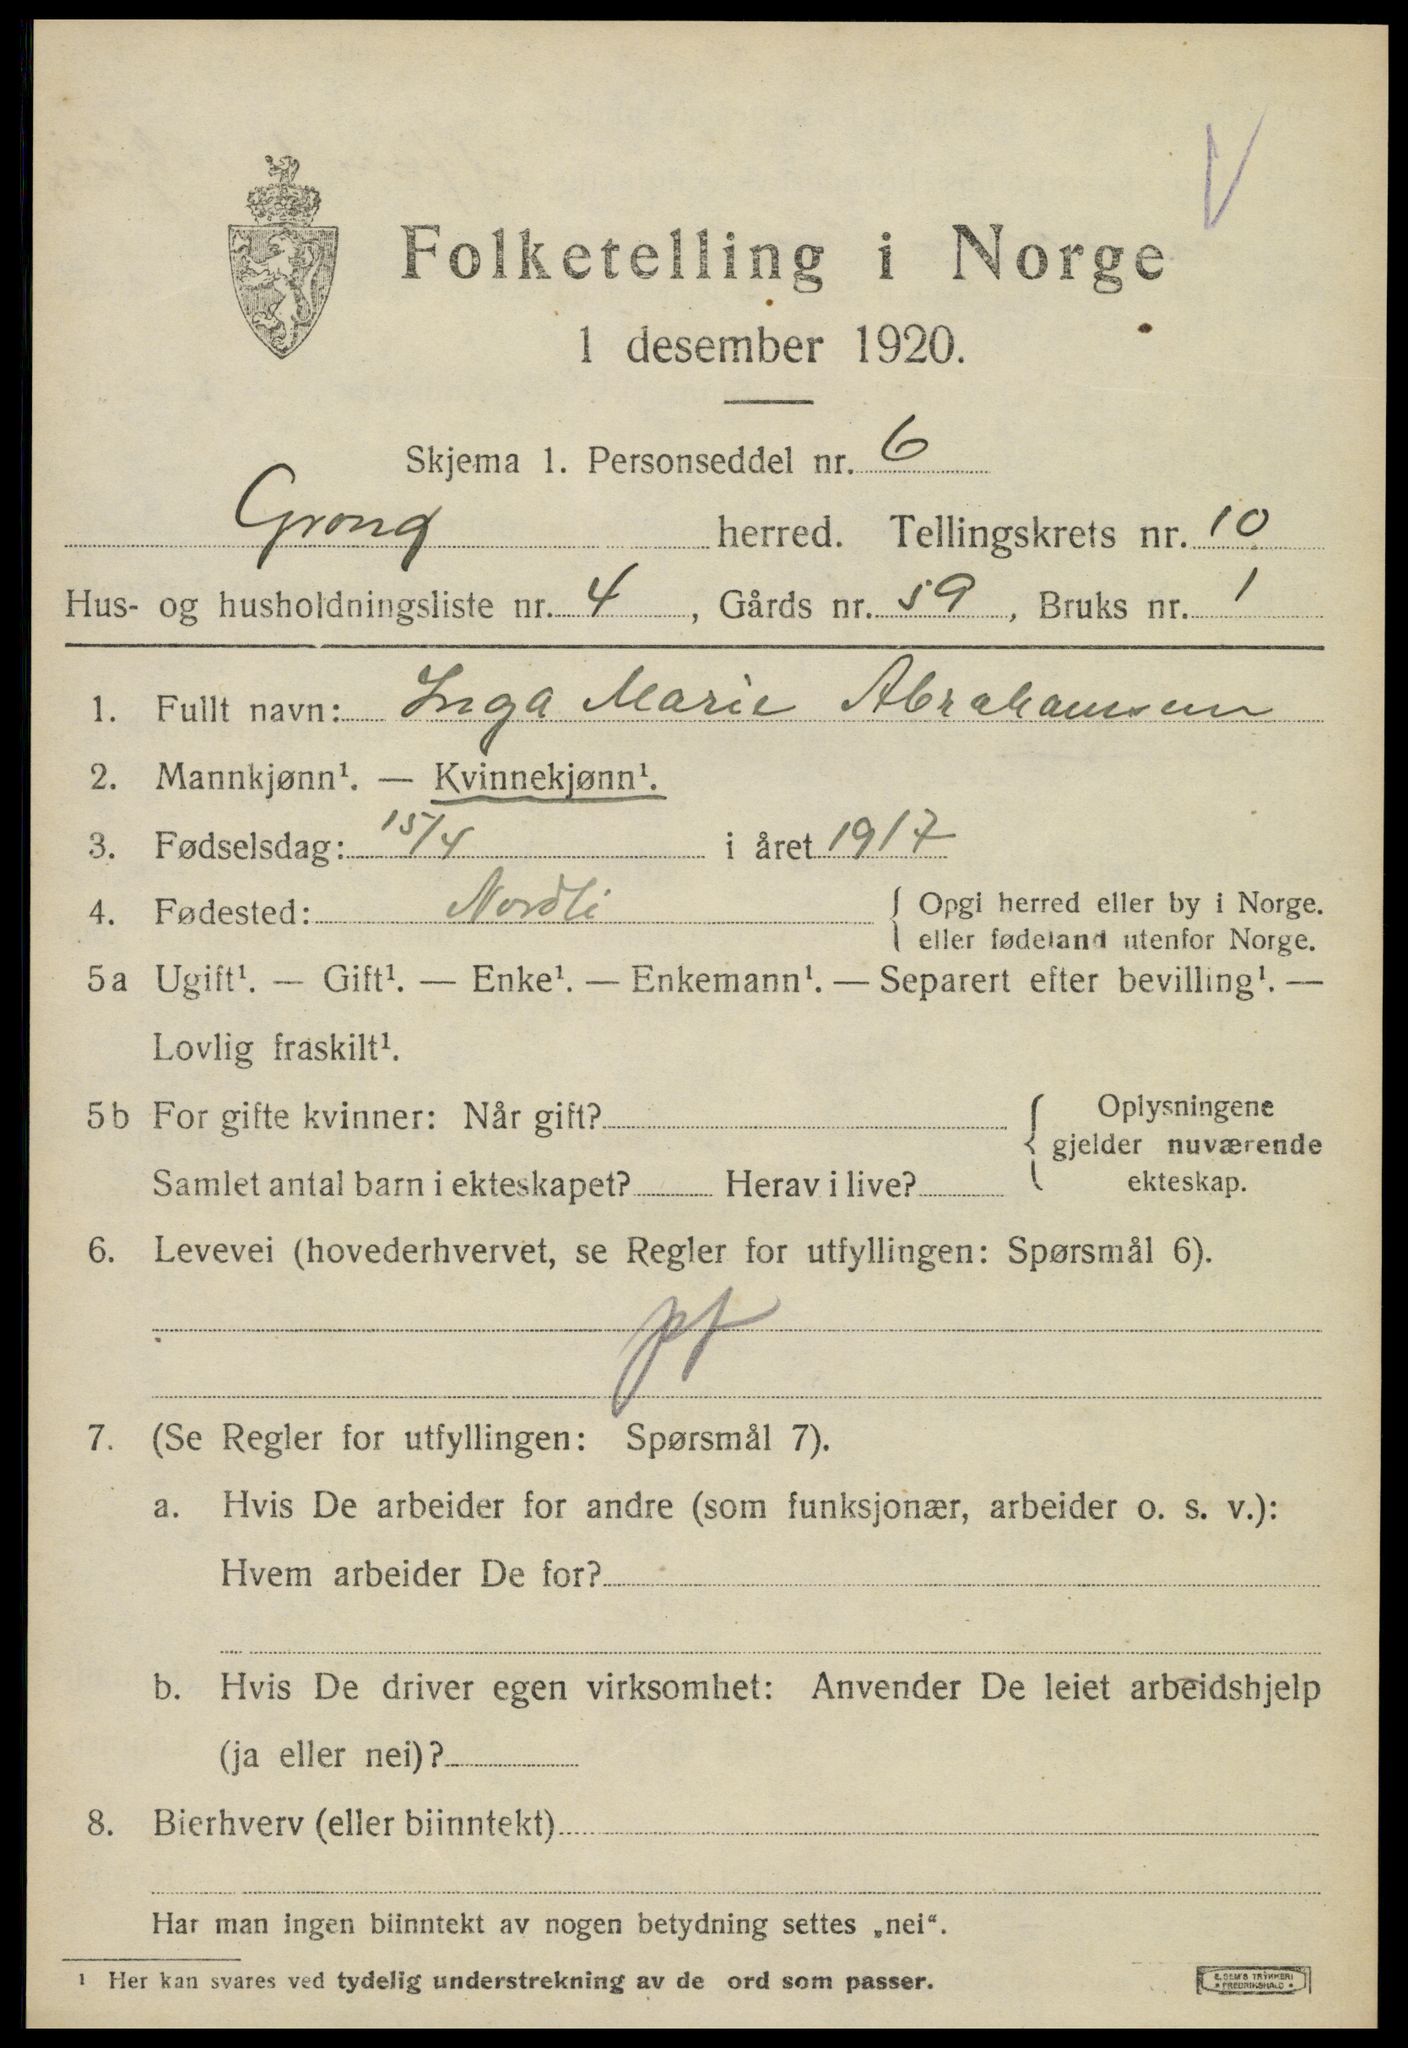 Folketelling i Norge
1 desember 1920.
Skjema 1. Personseddel nr. 6
Grong herred. Tellingskrets nr. 10
Hus- og husholdningsliste nr. 4, Gårds nr. 59, Bruks nr. 1
1. Fullt navn: Inga Marie Abrahamsen
2. Mannkjønn¹. — Kvinnekjønn¹.
3. Fødselsdag: 15/4 i året 1917
4. Fødested: Nordli { Opgi herred eller by i Norge.
eller fødeland utenfor Norge.
5a Ugift¹. — Gift¹. — Enke¹. — Enkemann¹. — Separert efter bevilling¹. —
Lovlig fraskilt¹.
5b For gifte kvinner: Når gift? { Oplysningene
gjelder nuværende
Samlet antal barn i ekteskapet? Herav i live? ekteskap.
6. Levevei (hovederhvervet, se Regler for utfyllingen: Spørsmål 6).
pf
7. (Se Regler for utfyllingen: Spørsmål 7).
a. Hvis De arbeider for andre (som funksjonær, arbeider o. s. v.):
Hvem arbeider De for?
b. Hvis De driver egen virksomhet: Anvender De leiet arbeidshjelp
(ja eller nei)?
8. Bierhverv (eller biinntekt)
Har man ingen biinntekt av nogen betydning settes „nei“.
¹ Her kan svares ved tydelig understrekning av de ord som passer.
E. SEM'S TRYKKERI
• FREDRIKSHALD •